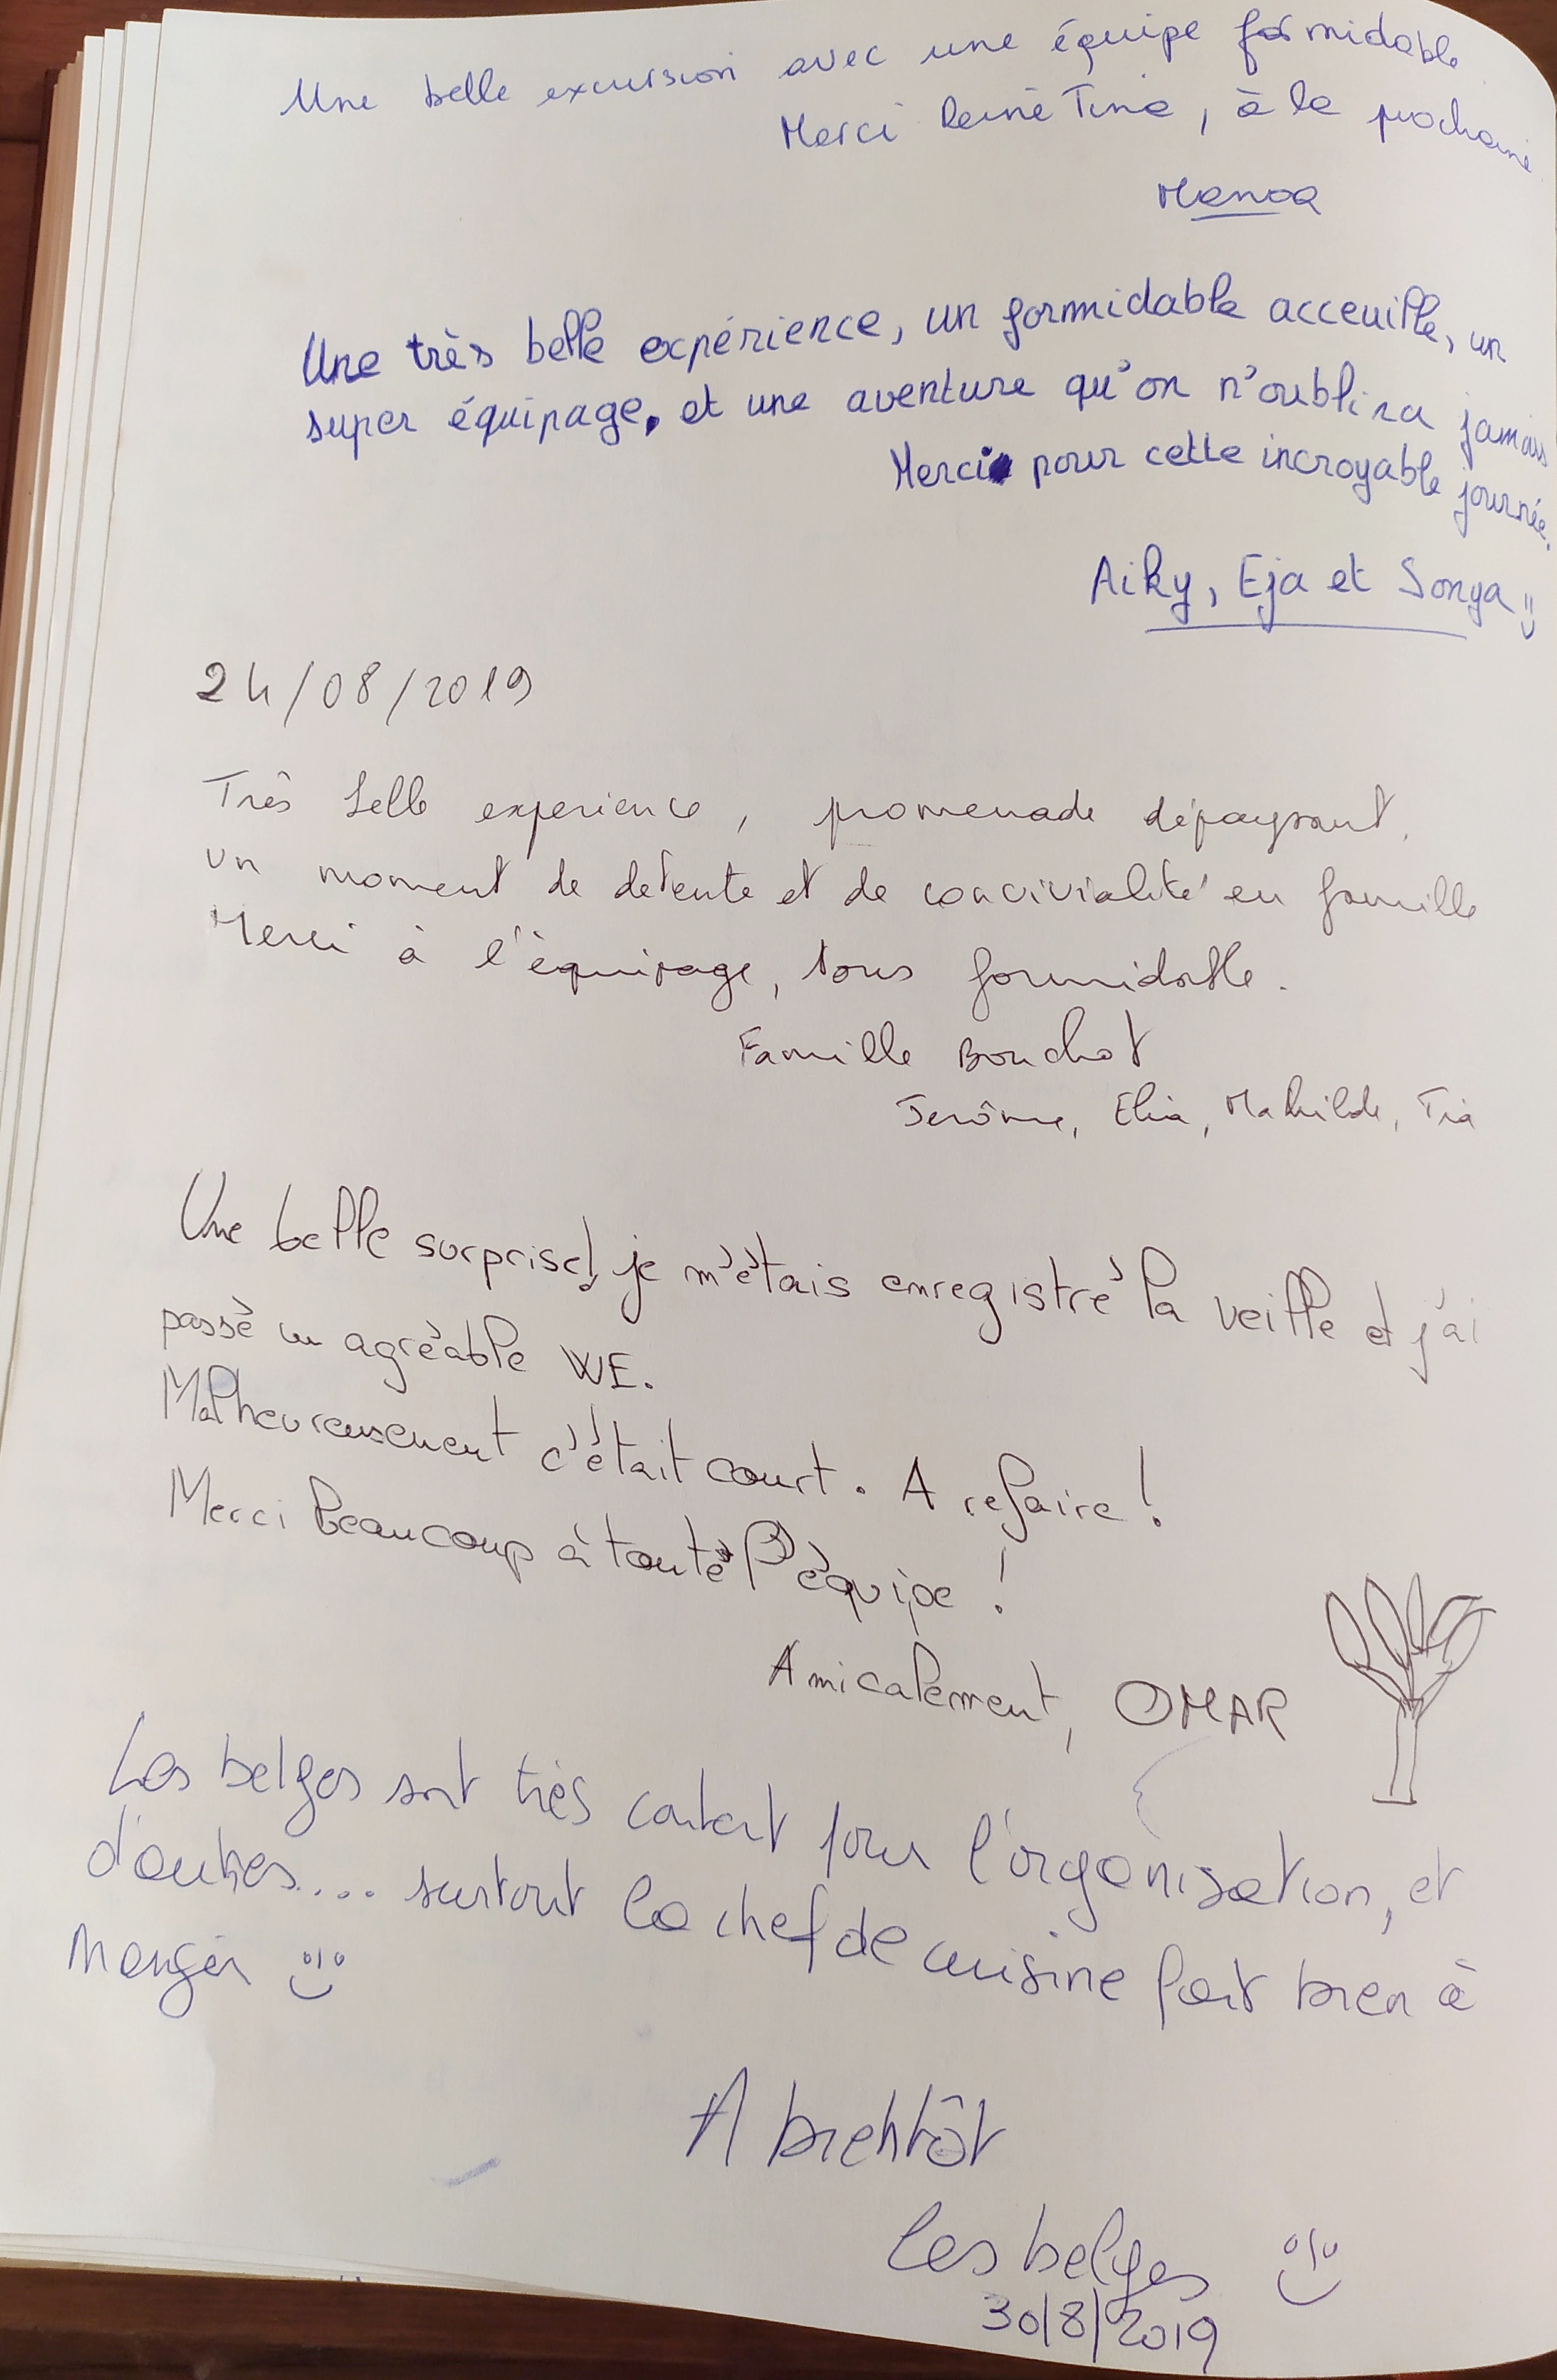 Une belle excursion avec une équipe formidable
Merci Reine Tina, à la prochaine
Manoa
Une très belle expérience, un formidable acceuille, un
super équipage, et une aventure qu'on n'oublira jamais
Merci pour cette incroyable journée.
Aiky, Eja et Sonya
24/08/2019
Très belle experience, promenade dépaysant.
Un moment de detente et de convivialité en famille
Merci à l'équipage, tous formidable.
Famille Bouchot
Jerôme, Elia, Mathilde, Tia
Une belle surprise! je m'étais enregistré la veille et j'ai
passé un agréable WE.
Malheureusement c'était court. A refaire!
Merci beaucoup à toute l'équipe!
Amicalement, OMAR
Les belges sont très content pour l'organisation, et
d'autres.... surtout le chef de cuisine fait bien à
manger
A bientôt
Les belges
30/8/2019